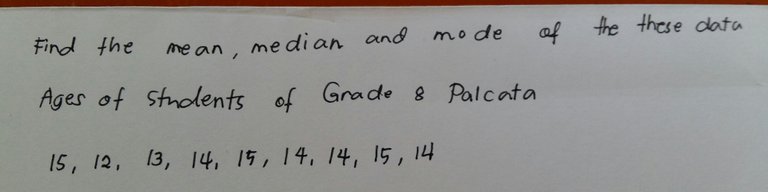 Find the mean, median and mode of the these data
Ages of Students of Grade 8 Palcata
15, 12, 13, 14, 15, 14, 14, 15, 14